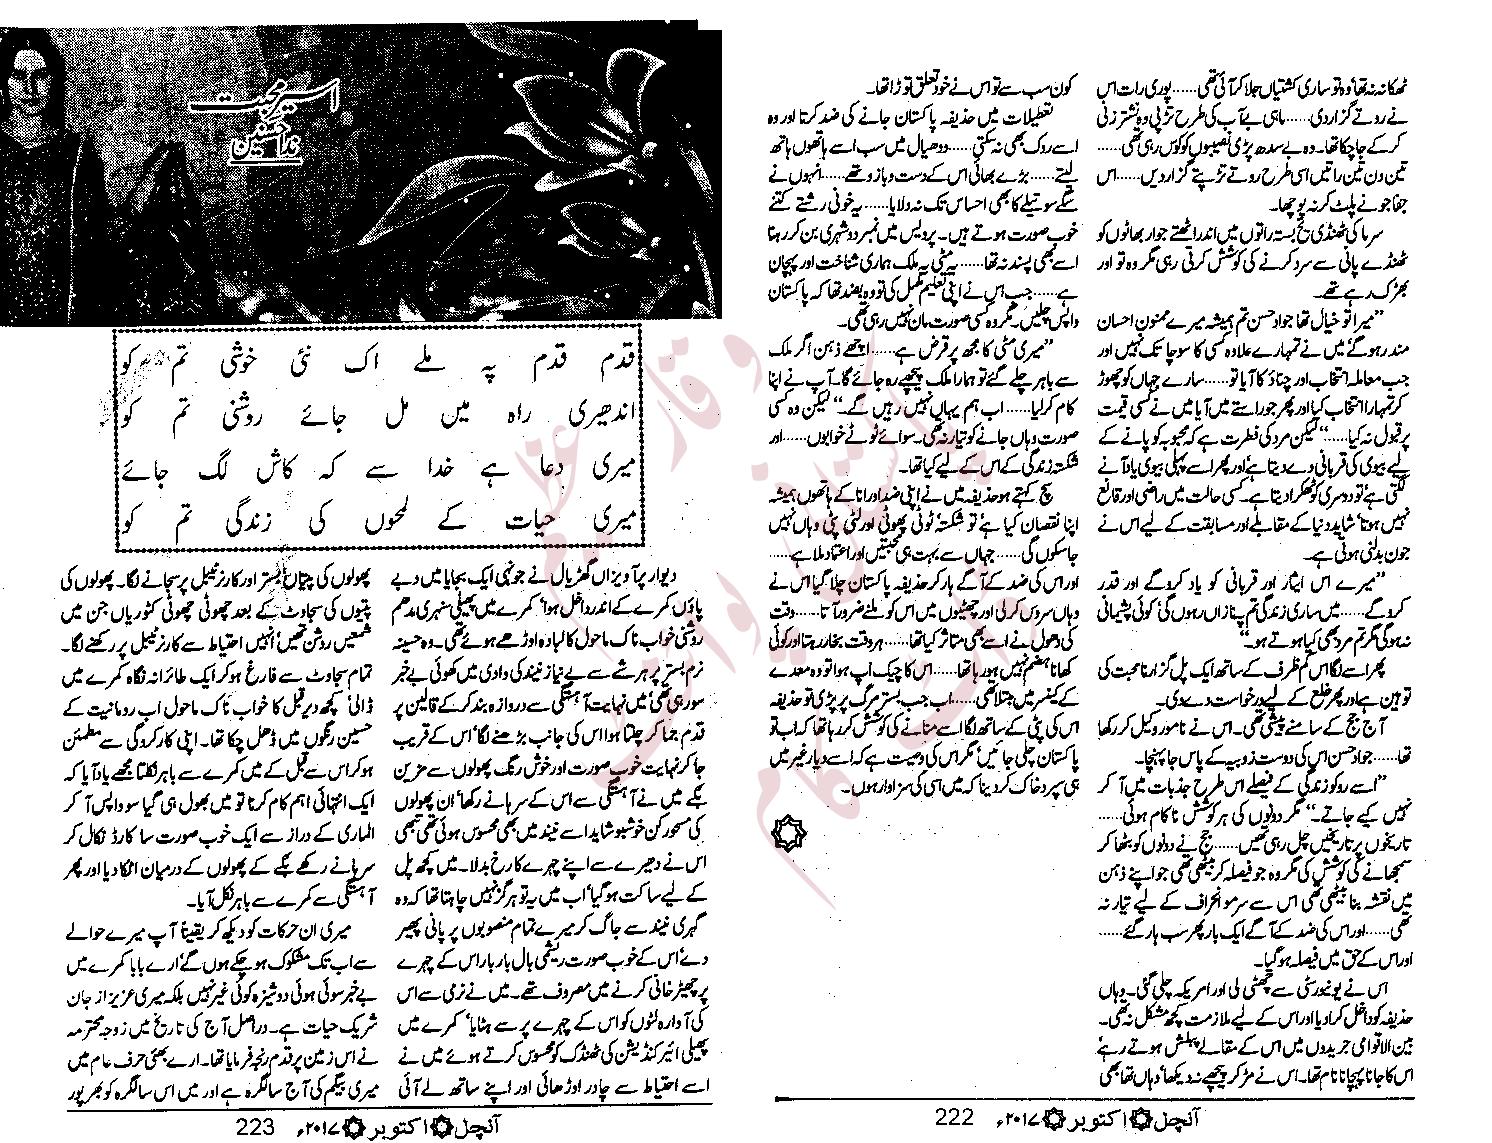 ٹھکانہ نہ تھا وہ تو ساری کشتیاں جلا کر آئی تھی...... پوری رات اس
نے روتے گزار دی...... ماہی بے آب کی طرح تڑپی وہ نشتر زنی
کر کے جا چکا تھا۔ وہ بے سدھ پڑی نصیبوں کو کوس رہی تھی......
تین دن تین راتیں اسی طرح روتے تڑپتے گزار دیں...... اس
جفا جو نے پلٹ کر نہ پوچھا۔
سرما کی ٹھنڈی یخ بستہ راتوں میں اندر اٹھتے جوار بھاٹوں کو
ٹھنڈے پانی سے سرد کرنے کی کوشش کرتی رہی مگر وہ تو اور
بھڑک رہے تھے۔
”میرا تو خیال تھا جواد حسن تم ہمیشہ میرے ممنون احسان
مند رہو گے‘ میں نے تمہارے علاوہ کسی کا سوچا تک نہیں اور
جب معاملہ انتخاب اور چناؤ کا آیا تو...... سارے جہاں کو چھوڑ
کر تمہارا انتخاب کیا اور پھر جو راستے میں آیا میں نے کسی قیمت
پر قبول نہ کیا......“ لیکن مرد کی فطرت ہے کہ محبوبہ کو پانے کے
لیے بیوی کی قربانی دے دیتا ہے‘ اور پھر اسے پہلی بیوی یاد آنے
لگتی ہے‘ تو دوسری کو ٹھکرا دیتا ہے۔ کسی حالت میں راضی اور قانع
نہیں ہوتا‘ شاید دنیا کے مقابلے اور مسابقت کے لیے اس نے
جون بدلنی ہوتی ہے۔
”میرے اس ایثار اور قربانی کو یاد کرو گے اور قدر
کرو گے...... میں ساری زندگی تم پر نازاں رہوں گی کوئی پشیمانی
نہ ہو گی مگر تم مرد بھی کیا ہوتے ہو۔“
پھر اسے لگا اس کم ظرف کے ساتھ ایک پل گزارنا محبت کی
توہین ہے اور پھر خلع کے لیے درخواست دے دی۔
آج جج کے سامنے پیشی تھی۔ اس نے نامور وکیل کر رکھا
تھا...... جواد حسن اس کی دوست زوبیہ کے پاس جا پہنچا۔
”اسے روکو زندگی کے فیصلے اس طرح جذبات میں آ کر
نہیں کیے جاتے۔“ مگر دونوں کی ہر کوشش ناکام ہوئی......
تاریخوں پر تاریخیں چل رہی تھیں...... جج نے دونوں کو بٹھا کر
سمجھانے کی کوشش کی مگر وہ جو فیصلہ کر بیٹھی تھی جو اپنے ذہن
میں نقشہ بنا بیٹھی تھی اس سے سرمو انحراف کے لیے تیار نہ
تھی...... اور اس کی ضد کے آگے ایک بار پھر سب ہار گئے......
اور اس کے حق میں فیصلہ ہو گیا۔
اس نے یونیورسٹی سے چھٹی لی اور امریکہ چلی گئی۔ وہاں
حذیفہ کو داخل کرا دیا اور اس کے لیے ملازمت کچھ مشکل نہ تھی۔
بین الاقوامی جریدوں میں اس کے مقالے پبلش ہوتے رہے‘
اس کا جانا پہچانا نام تھا۔ اس نے مڑ کر پیچھے نہ دیکھا‘ وہاں تھا بھی
کون سب سے تو اس نے خود تعلق توڑا تھا۔
تعطیلات میں حذیفہ پاکستان جانے کی ضد کرتا اور وہ
اسے روک بھی نہ سکتی...... ددھیال میں سب اسے ہاتھوں ہاتھ
لیتے...... بڑے بھائی اس کے دست و بازو تھے...... انہوں نے
سگے سوتیلے کا بھی احساس تک نہ دلایا...... یہ خونی رشتے کتنے
خوب صورت ہوتے ہیں۔ پردیس میں نمبر دو شہری بن کر رہنا
اسے بھی پسند نہ تھا...... یہ مٹی یہ ملک ہماری شناخت اور پہچان
ہے...... جب اس نے اپنی تعلیم مکمل کی تو وہ بضد تھا کہ پاکستان
واپس چلیں۔ مگر وہ کسی صورت مان نہیں رہی تھی۔
”میری مٹی کا مجھ پر قرض ہے...... اچھے ذہن اگر ملک
سے باہر چلے گئے تو ہمارا ملک پیچھے رہ جائے گا۔ آپ نے اپنا
کام کر لیا...... اب ہم یہاں نہیں رہیں گے۔“ لیکن وہ کسی
صورت وہاں جانے کو تیار نہ تھی۔ سوائے ٹوٹے خوابوں...... اور
شکستہ زندگی کے اس کے لیے کیا تھا۔
سچ کہتے ہو حذیفہ میں نے اپنی ضد اور انا کے ہاتھوں ہمیشہ
اپنا نقصان کیا ہے‘ تو شکستہ ٹوٹی پھوٹی اور لٹی پٹی وہاں نہیں
جا سکوں گی...... جہاں سے بہت ہی محبتیں اور اعتماد ملا ہے
اور اس کی ضد کے آگے ہار کر حذیفہ پاکستان چلا گیا اس نے
وہاں سروس کر لی اور چھٹیوں میں اس کو ملنے ضرور آتا...... وقت
کی دھول نے اسے بھی متاثر کیا تھا...... ہر وقت بخار رہتا اور کوئی
کھانا ہضم نہیں ہو رہا تھا...... اس کا چیک اپ ہوا تو وہ معدے
کے کینسر میں مبتلا تھی...... اب جب بستر مرگ پر پڑی تو حذیفہ
اس کی پٹی کے ساتھ لگا اسے منانے کی کوشش کر رہا تھا کہ اب تو
پاکستان چلی جائیں‘ مگر اس کی وصیت ہے کہ اسے دیار غیر میں
ہی سپرد خاک کر دینا کہ میں اسی کی سزاوار ہوں۔
آنچل اکتوبر ۲۰۱۷ء 222
اسیر محبت
ندا حسنین
قدم قدم پہ ملے اک نئی خوشی تم کو
اندھیری راہ میں مل جائے روشنی تم کو
میری دعا ہے خدا سے کہ کاش لگ جائے
میری حیات کے لمحوں کی زندگی تم کو
دیوار پر آویزاں گھڑیال نے جونہی ایک بجایا میں دبے
پاؤں کمرے کے اندر داخل ہوا‘ کمرے میں پھیلی سنہری مدھم
روشنی خواب ناک ماحول کا لبادہ اوڑھے ہوئے تھی۔ وہ حسینہ
نرم بستر پر ہر شے سے بے نیاز نیند کی وادی میں کھوئی بے خبر
سو رہی تھی‘ میں نہایت آہستگی سے دروازہ بند کر کے قالین پر
قدم جما کر چلتا ہوا اس کی جانب بڑھنے لگا‘ اس کے قریب
جا کر نہایت خوب صورت اور خوش رنگ پھولوں سے مزین
بکے میں نے آہستگی سے اس کے سرہانے رکھا‘ ان پھولوں
کی مسحور کن خوشبو شاید اسے نیند میں بھی محسوس ہوئی تھی تبھی
اس نے دھیرے سے اپنے چہرے کا رخ بدلا۔ میں کچھ پل
کے لیے ساکت ہو گیا‘ اب میں یہ تو ہرگز نہیں چاہتا تھا کہ وہ
گہری نیند سے جاگ کر میرے تمام منصوبوں پر پانی پھیر
دے‘ اس کے خوب صورت ریشمی بال بار بار اس کے چہرے
پر چھیڑ خانی کرنے میں مصروف تھے۔ میں نے نرمی سے اس
کی آوارہ لٹوں کو اس کے چہرے پر سے ہٹایا‘ کمرے میں
پھیلی ائیر کنڈیشن کی ٹھنڈک کو محسوس کرتے ہوئے میں نے
اسے احتیاط سے چادر اوڑھائی اور اپنے ساتھ لے آئی
پھولوں کی پتیاں بستر اور کارنر ٹیبل پر سجانے لگا۔ پھولوں کی
پتیوں کی سجاوٹ کے بعد چھوٹی چھوٹی کٹوریاں جن میں
شمعیں روشن تھیں‘ انہیں احتیاط سے کارنر ٹیبل پر رکھنے لگا۔
تمام سجاوٹ سے فارغ ہو کر ایک طائرانہ نگاہ کمرے میں
ڈالی‘ کچھ دیر قبل کا خواب ناک ماحول اب رومانیت کے
حسین رنگوں میں ڈھل چکا تھا۔ اپنی کارکردگی سے مطمئن
ہو کر اس سے قبل کے میں کمرے سے باہر نکلتا مجھے یاد آیا کہ
ایک انتہائی اہم کام کرنا تو میں بھول ہی گیا سو واپس آ کر
الماری کے دراز سے ایک خوب صورت سا کارڈ نکال کر
سرہانے رکھے بکے کے پھولوں کے درمیان اٹکا دیا اور پھر
آہستگی سے کمرے سے باہر نکل آیا۔
میری ان حرکات کو دیکھ کر یقیناً آپ میرے حوالے
سے اب تک مشکوک ہو چکے ہوں گے‘ ارے بابا کمرے میں
بے خبر سوئی ہوئی دوشیزہ کوئی غیر نہیں بلکہ میری عزیز از جان
شریک حیات ہے۔ دراصل آج کی تاریخ میں زوجہ محترمہ
نے اس زمین پر قدم رنجہ فرمایا تھا۔ ارے بھئی حرف عام میں
میری بیگم کی آج سالگرہ ہے اور میں اس سالگرہ کو بھرپور
آنچل اکتوبر ۲۰۱۷ء 223